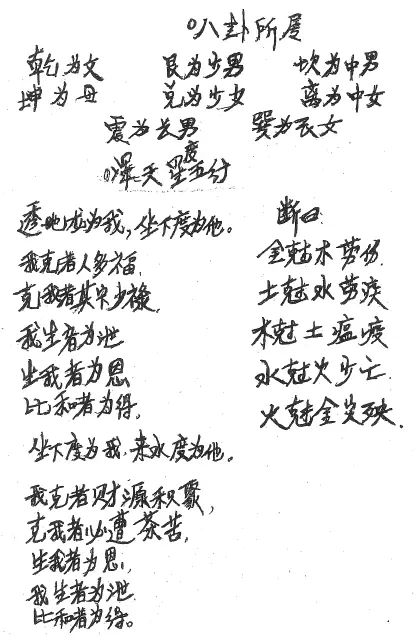 八卦所属
乾为父 艮为少男 坎为中男
坤为母 兑为少女 离为中女
震为长男 巽为长女
浑天星度五行
透地龙为我,坐下度为他。
我克者人多福,
克我者其家少禄,
我生者为泄
生我者为恩
比和者为得,
坐下度为我,来水度为他。
我克者财源积聚,
克我者必遭荼苦,
生我者为恩,
我生者为泄
比和者为得。
断曰
金尅木劳伤
土尅水劳疾
木尅土瘟疫
水尅火少亡
火尅金灾殃